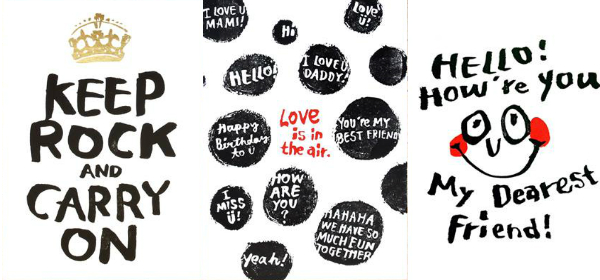 KEEP
ROCK
AND
CARRY
ON
I LOVE U
MAMI!
Hi
Love
U!
HELLO!
I LOVE U
DADDY!
Happy
Birthday
to U
Love
is in
the air.
You're MY
BEST FRIEND
I
MISS
U!
HOW
ARE
YOU
?
HAHAHA
WE HAVE SO
MUCH FUN
TOGETHER
Yeah!
HELLO!
How're you
My Dearest
Friend!